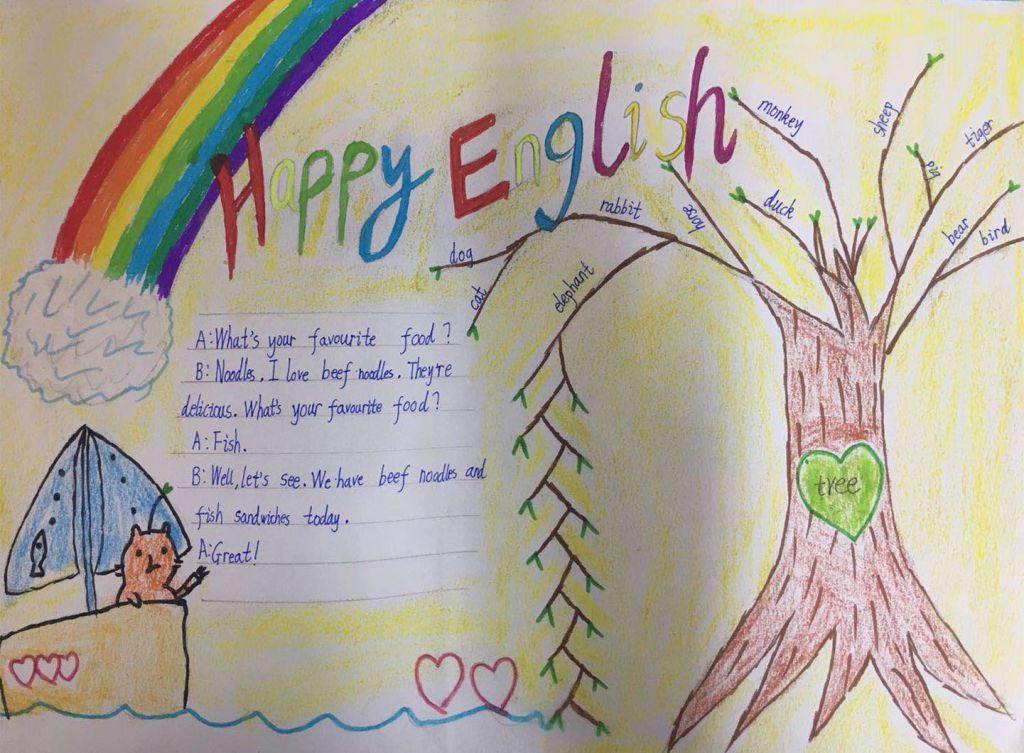 Happy English
monkey
sheep
tiger
pig
duck
horse
rabbit
bear
bird
dog
cat
elephant
A: What's your favourite food?
B: Noodles. I love beef noodles. They're
delicious. What's your favourite food?
A: Fish.
B: Well, let's see. We have beef noodles and
fish sandwiches today.
A: Great!
tree